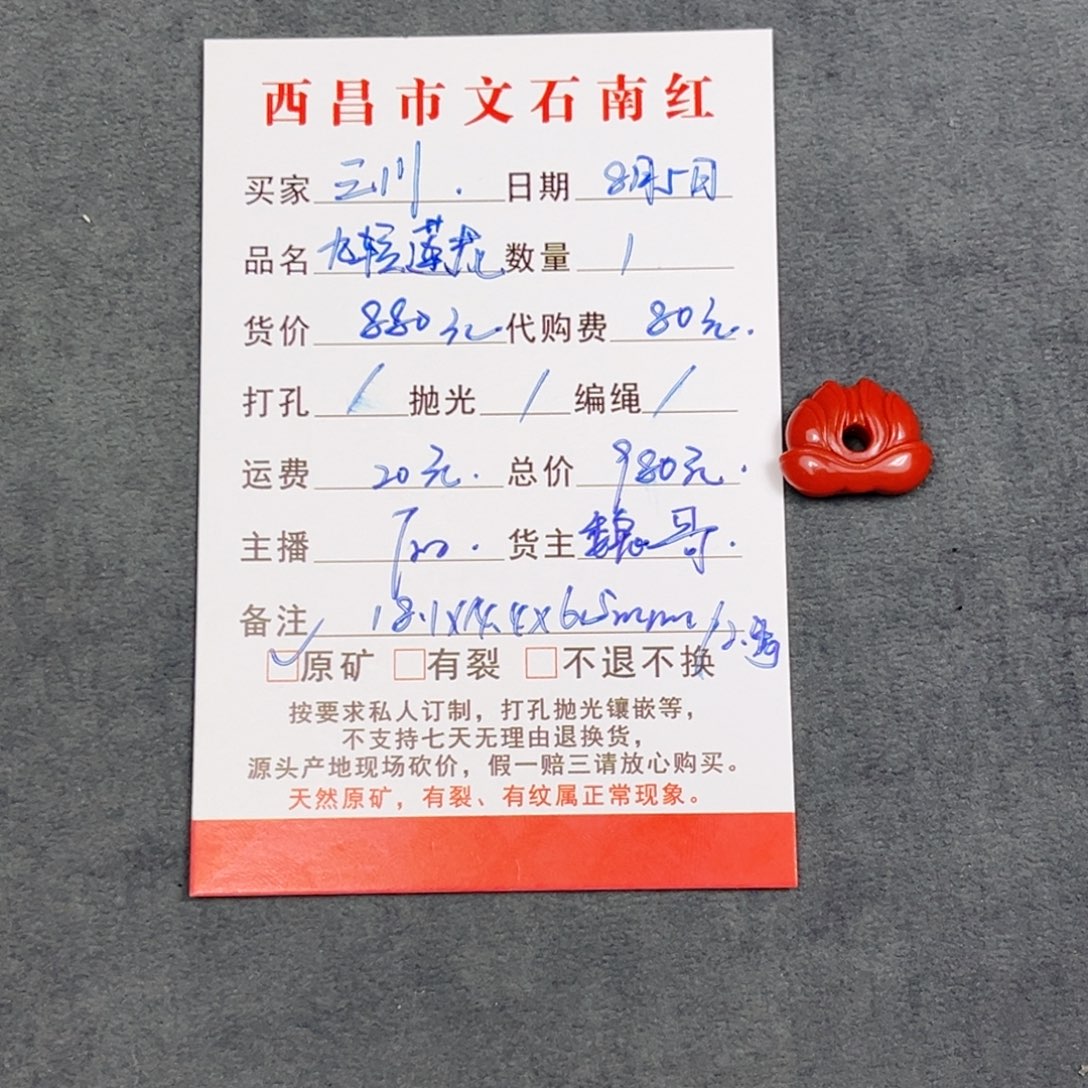 西昌市文石南红
买家 三川. 日期 8月5日
品名 莲花 数量 1
货价 880元. 代购费 80元.
打孔 / 抛光 / 编绳 /
运费 20元. 总价 980元.
主播 货主 魏哥.
备注 18.1X14.4X6.5mm/2.
原矿 有裂 不退不换
按要求私人订制，打孔抛光镶嵌等，
不支持七天无理由退换货，
源头产地现场砍价，假一赔三请放心购买。
天然原矿，有裂、有纹属正常现象。